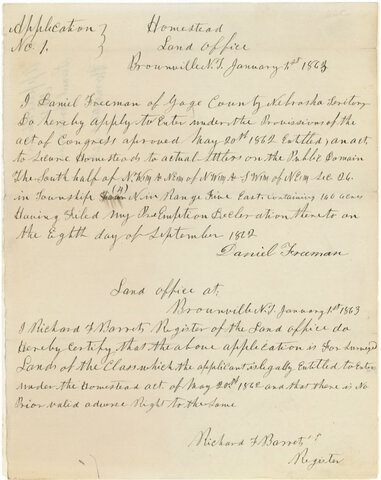 Application }
No. 1. }
Homestead
Land office
Brownville N.T. January 1st 1863
I Daniel Freeman of Gage County Nebraska Territory
Do hereby apply to Enter under the Provisions of the
act of Congress aproved May 20th 1862 Entitled, an act,
to Secure Homesteads to actual Settlers on the Public Domain
The South half of N.W¼ & NE¼ of N.W¼ & S.W¼ of N.E¼ Sec 26.
in Township (4) N. in Range Five East. containing 160 acres
Having Filed my PreEmption Declaration thereto on
the Eighth day of September 1862
Daniel Freeman
Land office at
Brownville N.T. January 1st 1863
I Richard F Barrett Register of the Land office do
Hereby Certify that the above application is For Surveyed
Lands of the Class which the applicant is legally Entitled to Enter
under the Homestead act of May 20th 1862 and that there is No
Prior valid adverse Right to the Same
Richard F Barrett
Register